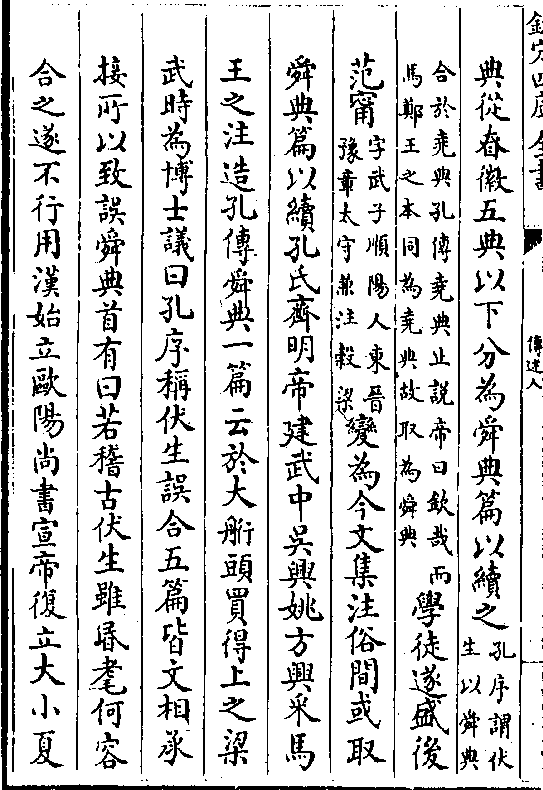 欽定四庫全書
傳述人
典從昚徽五典以下分為舜典篇以續之
孔序謂伏
生以舜典
合於堯典孔傳堯典止說帝曰欽哉而
馬鄭王之本同為堯典故取為舜典
學徒遂盛後
范甯
字武子順陽人東晉
豫章太守兼注穀梁
變為今文集注俗間或取
舜典篇以續孔氏齊明帝建武中吳興姚方興采馬
王之注造孔傳舜典一篇云於大𦨵頭買得上之梁
武時為博士議曰孔序稱伏生誤合五篇皆文相承
接所以致誤舜典首有曰若稽古伏生雖昬耄何容
合之遂不行用漢始立歐陽尚書宣帝復立大小夏